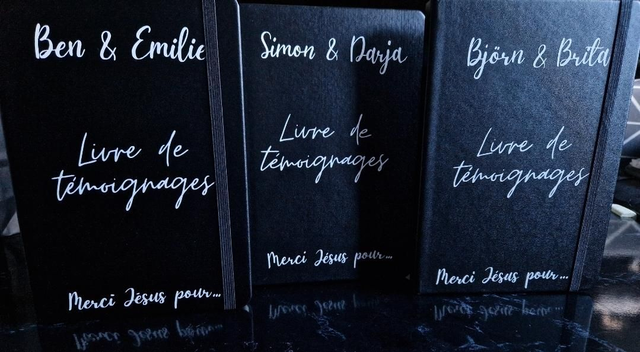 Ben & Emilie
Livre de
témoignages
Merci Jésus pour...
Simon & Darja
Livre de
témoignages
Merci Jésus pour...
Björn & Brita
Livre de
témoignages
Merci Jésus pour...